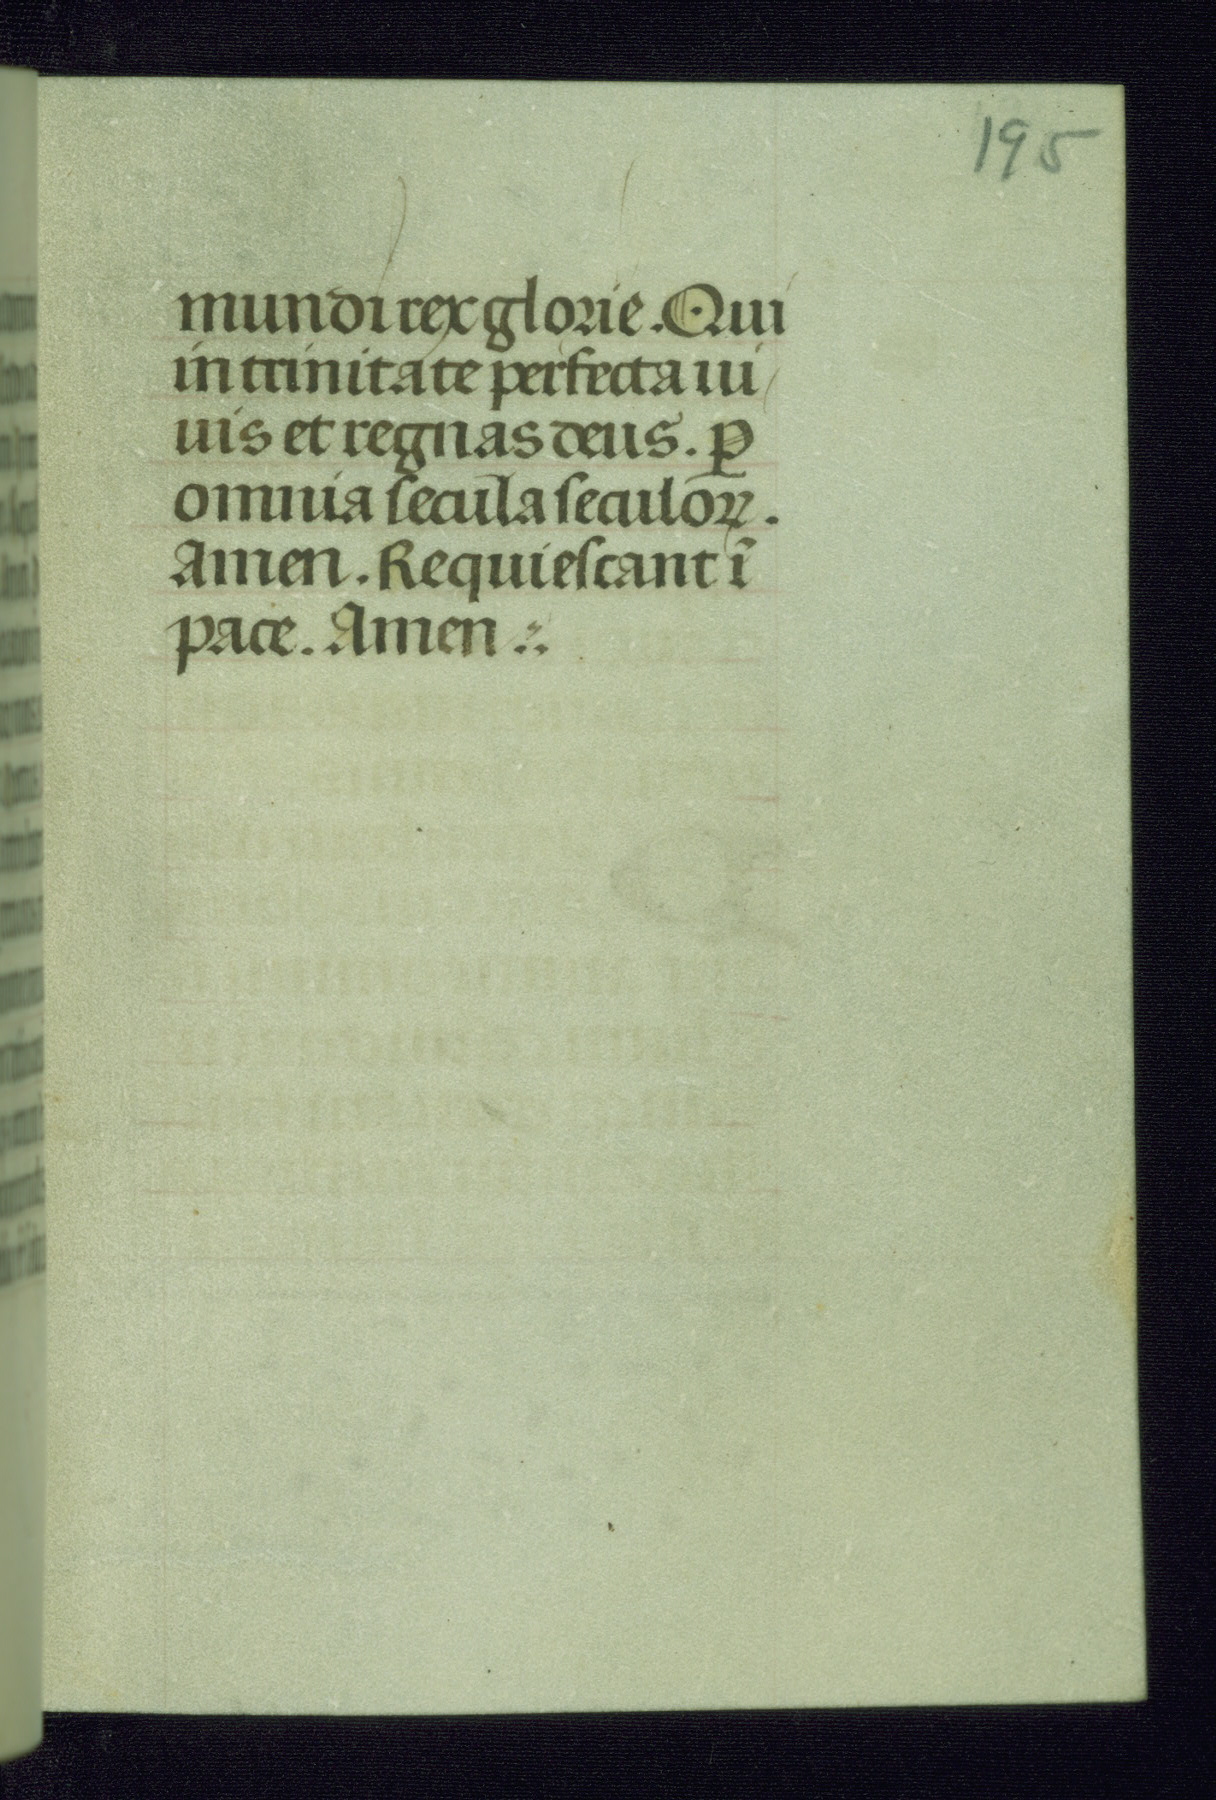 195
mundi rex glorie. Qui
in trinitate perfecta ui
uis et regnas deus. ꝑ
omnia secula seculoꝝ.
Amen. Requiescant ī
pace. Amen ⁖